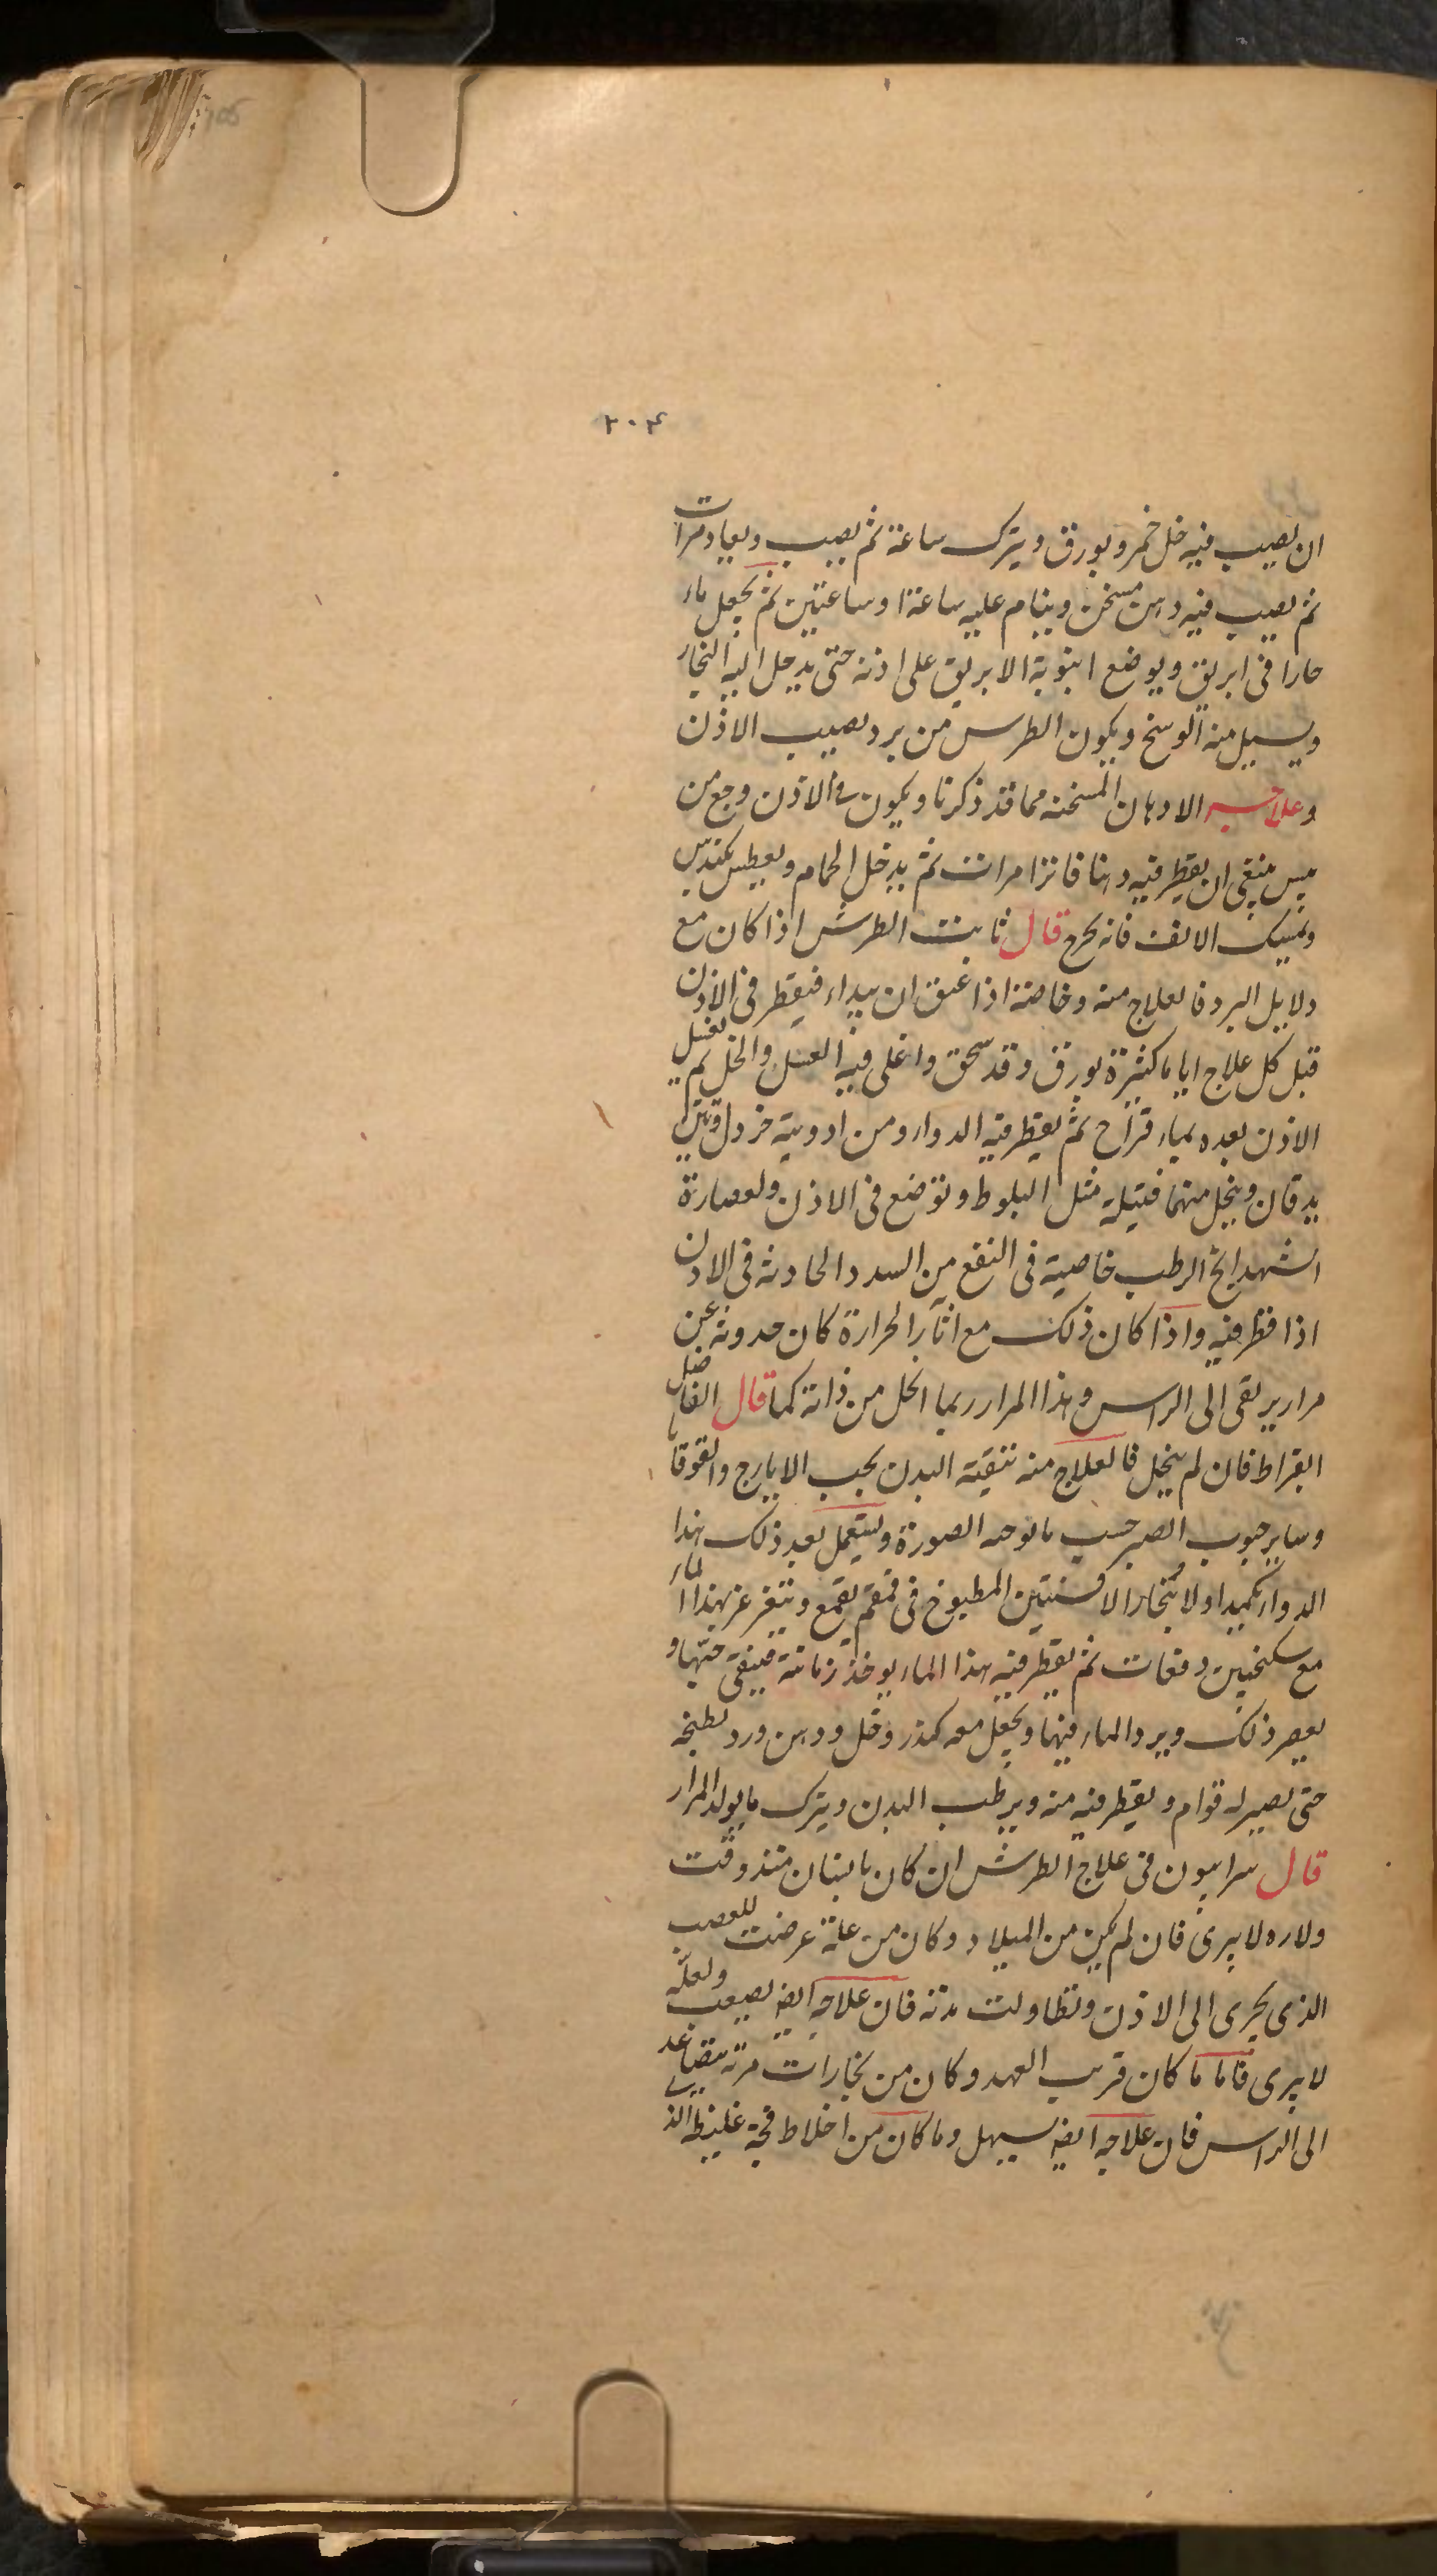 ٢٠٤
ان يصيب فيه خل خمر وبورق ويترك ساعة ثم يصيب ويعاد مرات
ثم يصيب فيه دهن مسخن وينام عليه ساعة او ساعتين ثم يجعل ماء
حارا فى ابريق ويوضع انبوبة الابريق على اذنه حتى يدخل اليه البخار
ويسيل منه الوسخ ويكون الطرس من برد يصيب الاذن
وعلاجه الادهان المسخنه مما قد ذكرنا ويكون فى الاذن وجع من
يبس ينبغى ان يقطر فيه دهنا فاترا مرات ثم يدخل الحمام ويعطس بكندس
ويمسك الانف فانه يخرج قال ثابت الطرش اذا كان مع
دلايل البرد فالعلاج منه وخاصة اذا عتق ان يبداء فيقطر فى الاذن
قبل كل علاج اياما كثيرة بورق وقد سحق واغلى فيه العسل والخل ثم يغسل
الاذن بعده بماء قراح ثم يقطر فيه الدواء ومن ادويته خردل وتين
يدقان ويجعل منهما فتيلة مثل البلوط وتوضع فى الاذن ولعصارة
الشهدانج الرطب خاصية فى النفع من السدد الحادثه فى الاذن
اذا قطر فيه واذا كان ذلك مع اثار الحرارة كان حدوثه عن
مرار يرتقى الى الراس وهذا المرار ربما انحل من ذاته كما قال الفاضل
ابقراط فان لم ينحل فالعلاج منه تنقية البدن بحب الايارج والقوقايا
وساير حبوب الصبر حسب ما توجه الصورة ويستعمل بعد ذلك هذا
الدواء تكميدا اولا ببخار الافسنتين المطبوخ فى قمقم بقمع ويتغرغر بهذا الماء
مع سكنجبين دفعات ثم يقطر فيه هذا الماء يوخذ رمانة فينقى حبها و
يعصر ذلك ويرد الماء فيها ويجعل معه كندر وخل ودهن ورد يطبخه
حتى يصير له قوام ويقطر فيه منه ويرطب البدن ويترك ما يولد المرار
قال سرابيون فى علاج الطرش ان كان بانسان منذ وقت
ولاده لا يبرى فان لم يكن من الميلاد وكان من علة عرضت للعصب
الذى يجرى الى الاذن وتطاولت مدته فان علاجه ايضا يصعب ولعله
لا يبرى فاما ما كان قريب العهد وكان من بخارات مرته يتصاعد
الى الراس فان علاجه ايضا يسهل وما كان من اخلاط فجة غليظة الذى